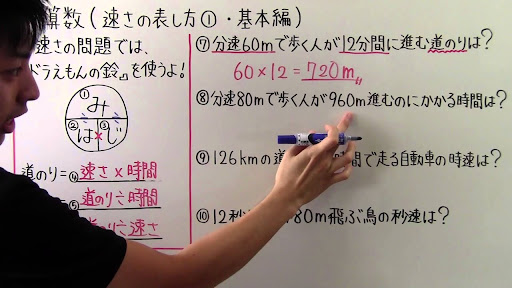 算数(速さの表し方①・基本編)
速さの問題では、
ドラえもんの鈴』を使うよ!
① み
② は × ③ じ
道のり=④速さ×時間
=⑤道のり÷時間
道のり÷速さ
⑦分速60mで歩く人が12分間に進む道のりは?
60×12=720m
⑧分速80mで歩く人が960m進むのにかかる時間は?
⑨126kmの道 時間で走る自動車の時速は?
⑩12秒 80m飛ぶ鳥の秒速は?